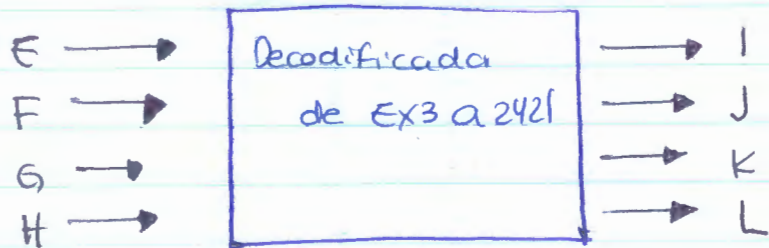 E
F
G
H
Decodificada
de EX3 a 2421
I
J
K
L